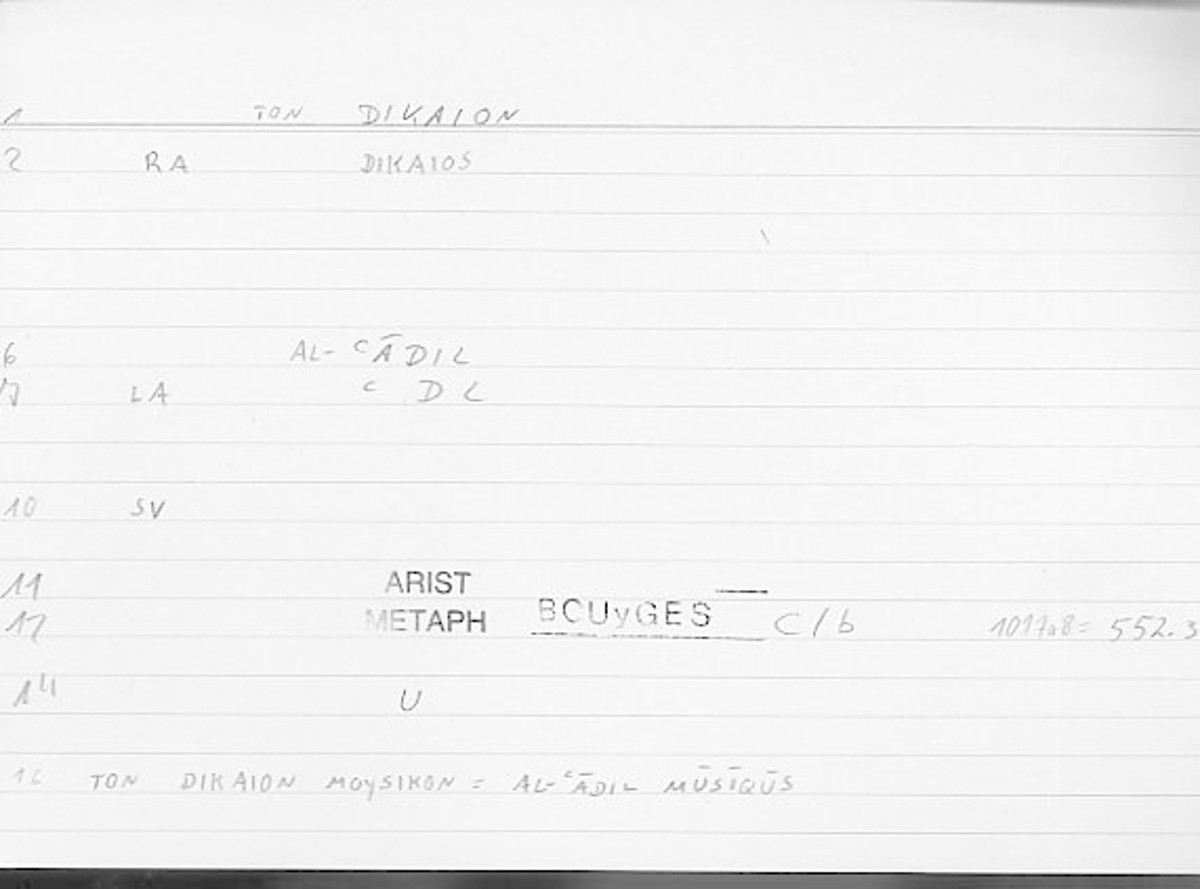 1 TON DIKAION
2 RA DIKAIOS
6 AL-ᶜĀDIL
7 LA ᶜDL
10 SV
11 ARIST
12 METAPH BOUyGES C/b 1017a8= 552.3
14 U
16 TON DIKAION MOySIKON = AL-ᶜĀDIL MŪSĪQŪS